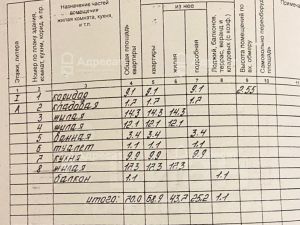 Этаж, литера
Номер по плану здания,
Назначение частей
помещения
жилая комната, кухня,
и т.п.
Общая площадь
квартиры
из нее
квартиры
жилая
подсобная
Высота помещений по
Адресат
1 2 3 4 5 6 7 8 9 10
I 1 коридор 9.1 9.1 9.1 2.55
А 2 кладовая 1.7 1.7 1.7
3 жилая 14.3 14.3 14.3
4 жилая 12.1 12.1 12.1
5 ванная 3.4 3.4 3.4
6 туалет 1.1 1.1 1.1
7 кухня 9.9 9.9 9.9
8 жилая 17.3 17.3 17.3
балкон 1.1 1.1
итого: 70.0 68.9 43.7 25.2 1.1